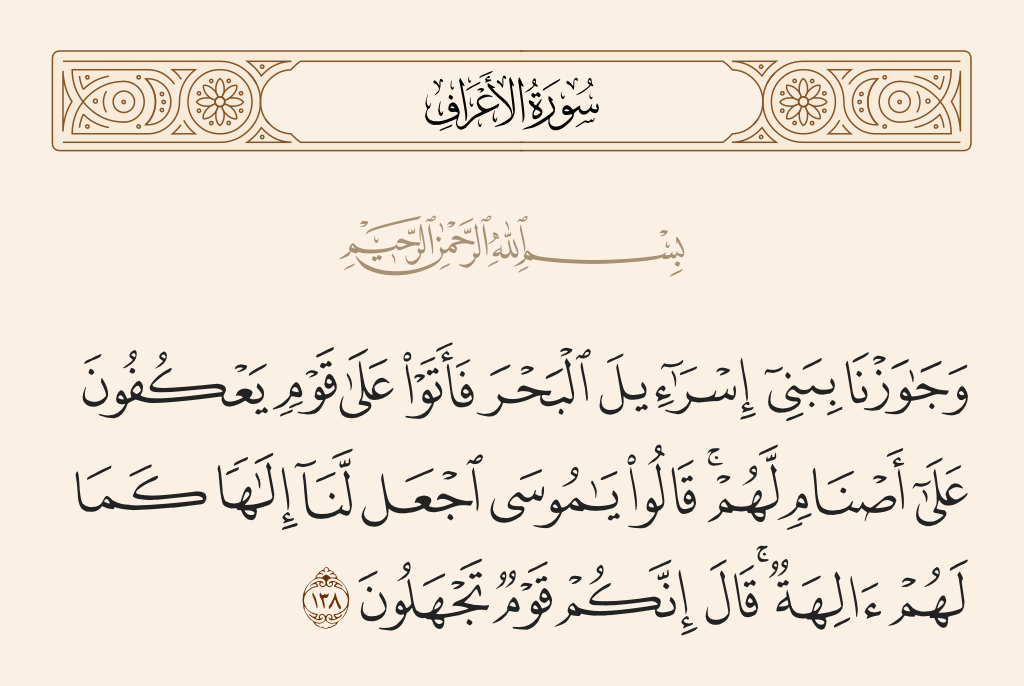 سُورَةُ الأَعْرَافِ
بِسْمِ ٱللَّهِ ٱلرَّحْمَٰنِ ٱلرَّحِيمِ
وَجَٰوَزْنَا بِبَنِىٓ إِسْرَٰٓءِيلَ ٱلْبَحْرَ فَأَتَوْا۟ عَلَىٰ قَوْمٍ يَعْكُفُونَ
عَلَىٰٓ أَصْنَامٍ لَّهُمْ ۚ قَالُوا۟ يَٰمُوسَى ٱجْعَل لَّنَآ إِلَٰهًا كَمَا
لَهُمْ ءَالِهَةٌ ۚ قَالَ إِنَّكُمْ قَوْمٌ تَجْهَلُونَ ١٣٨